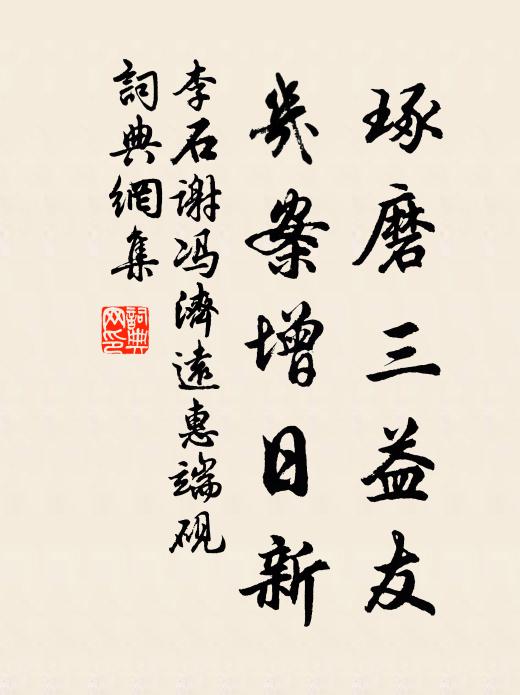 琢磨三益友
几案增日新
李石谢冯濟遠惠端砚
詞典網集
詞典网印